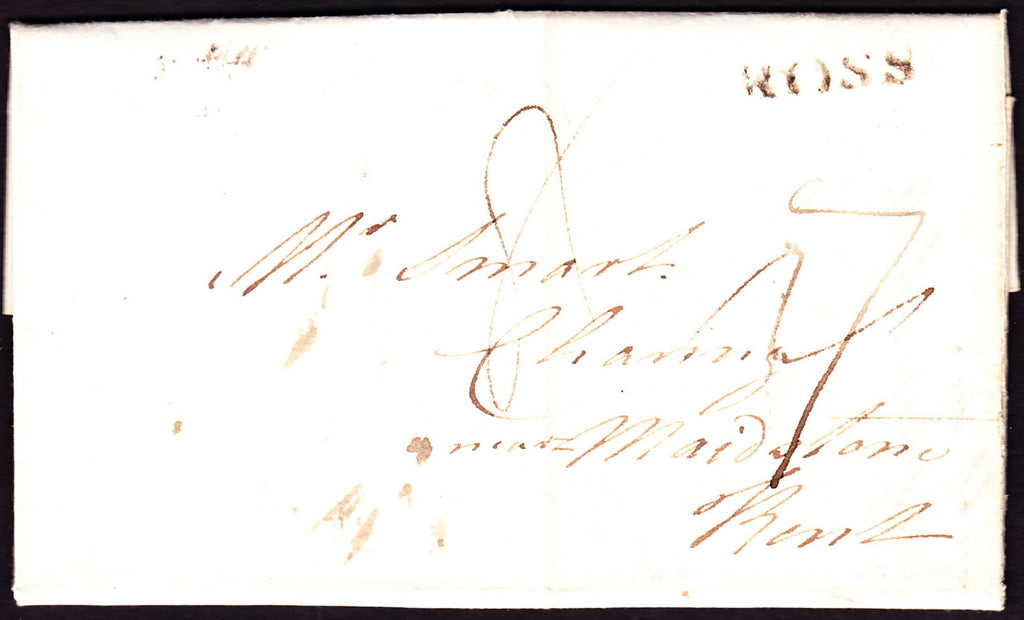 ROSS
8
7
Mr. Smart.
Charing
near Maidstone
Kent